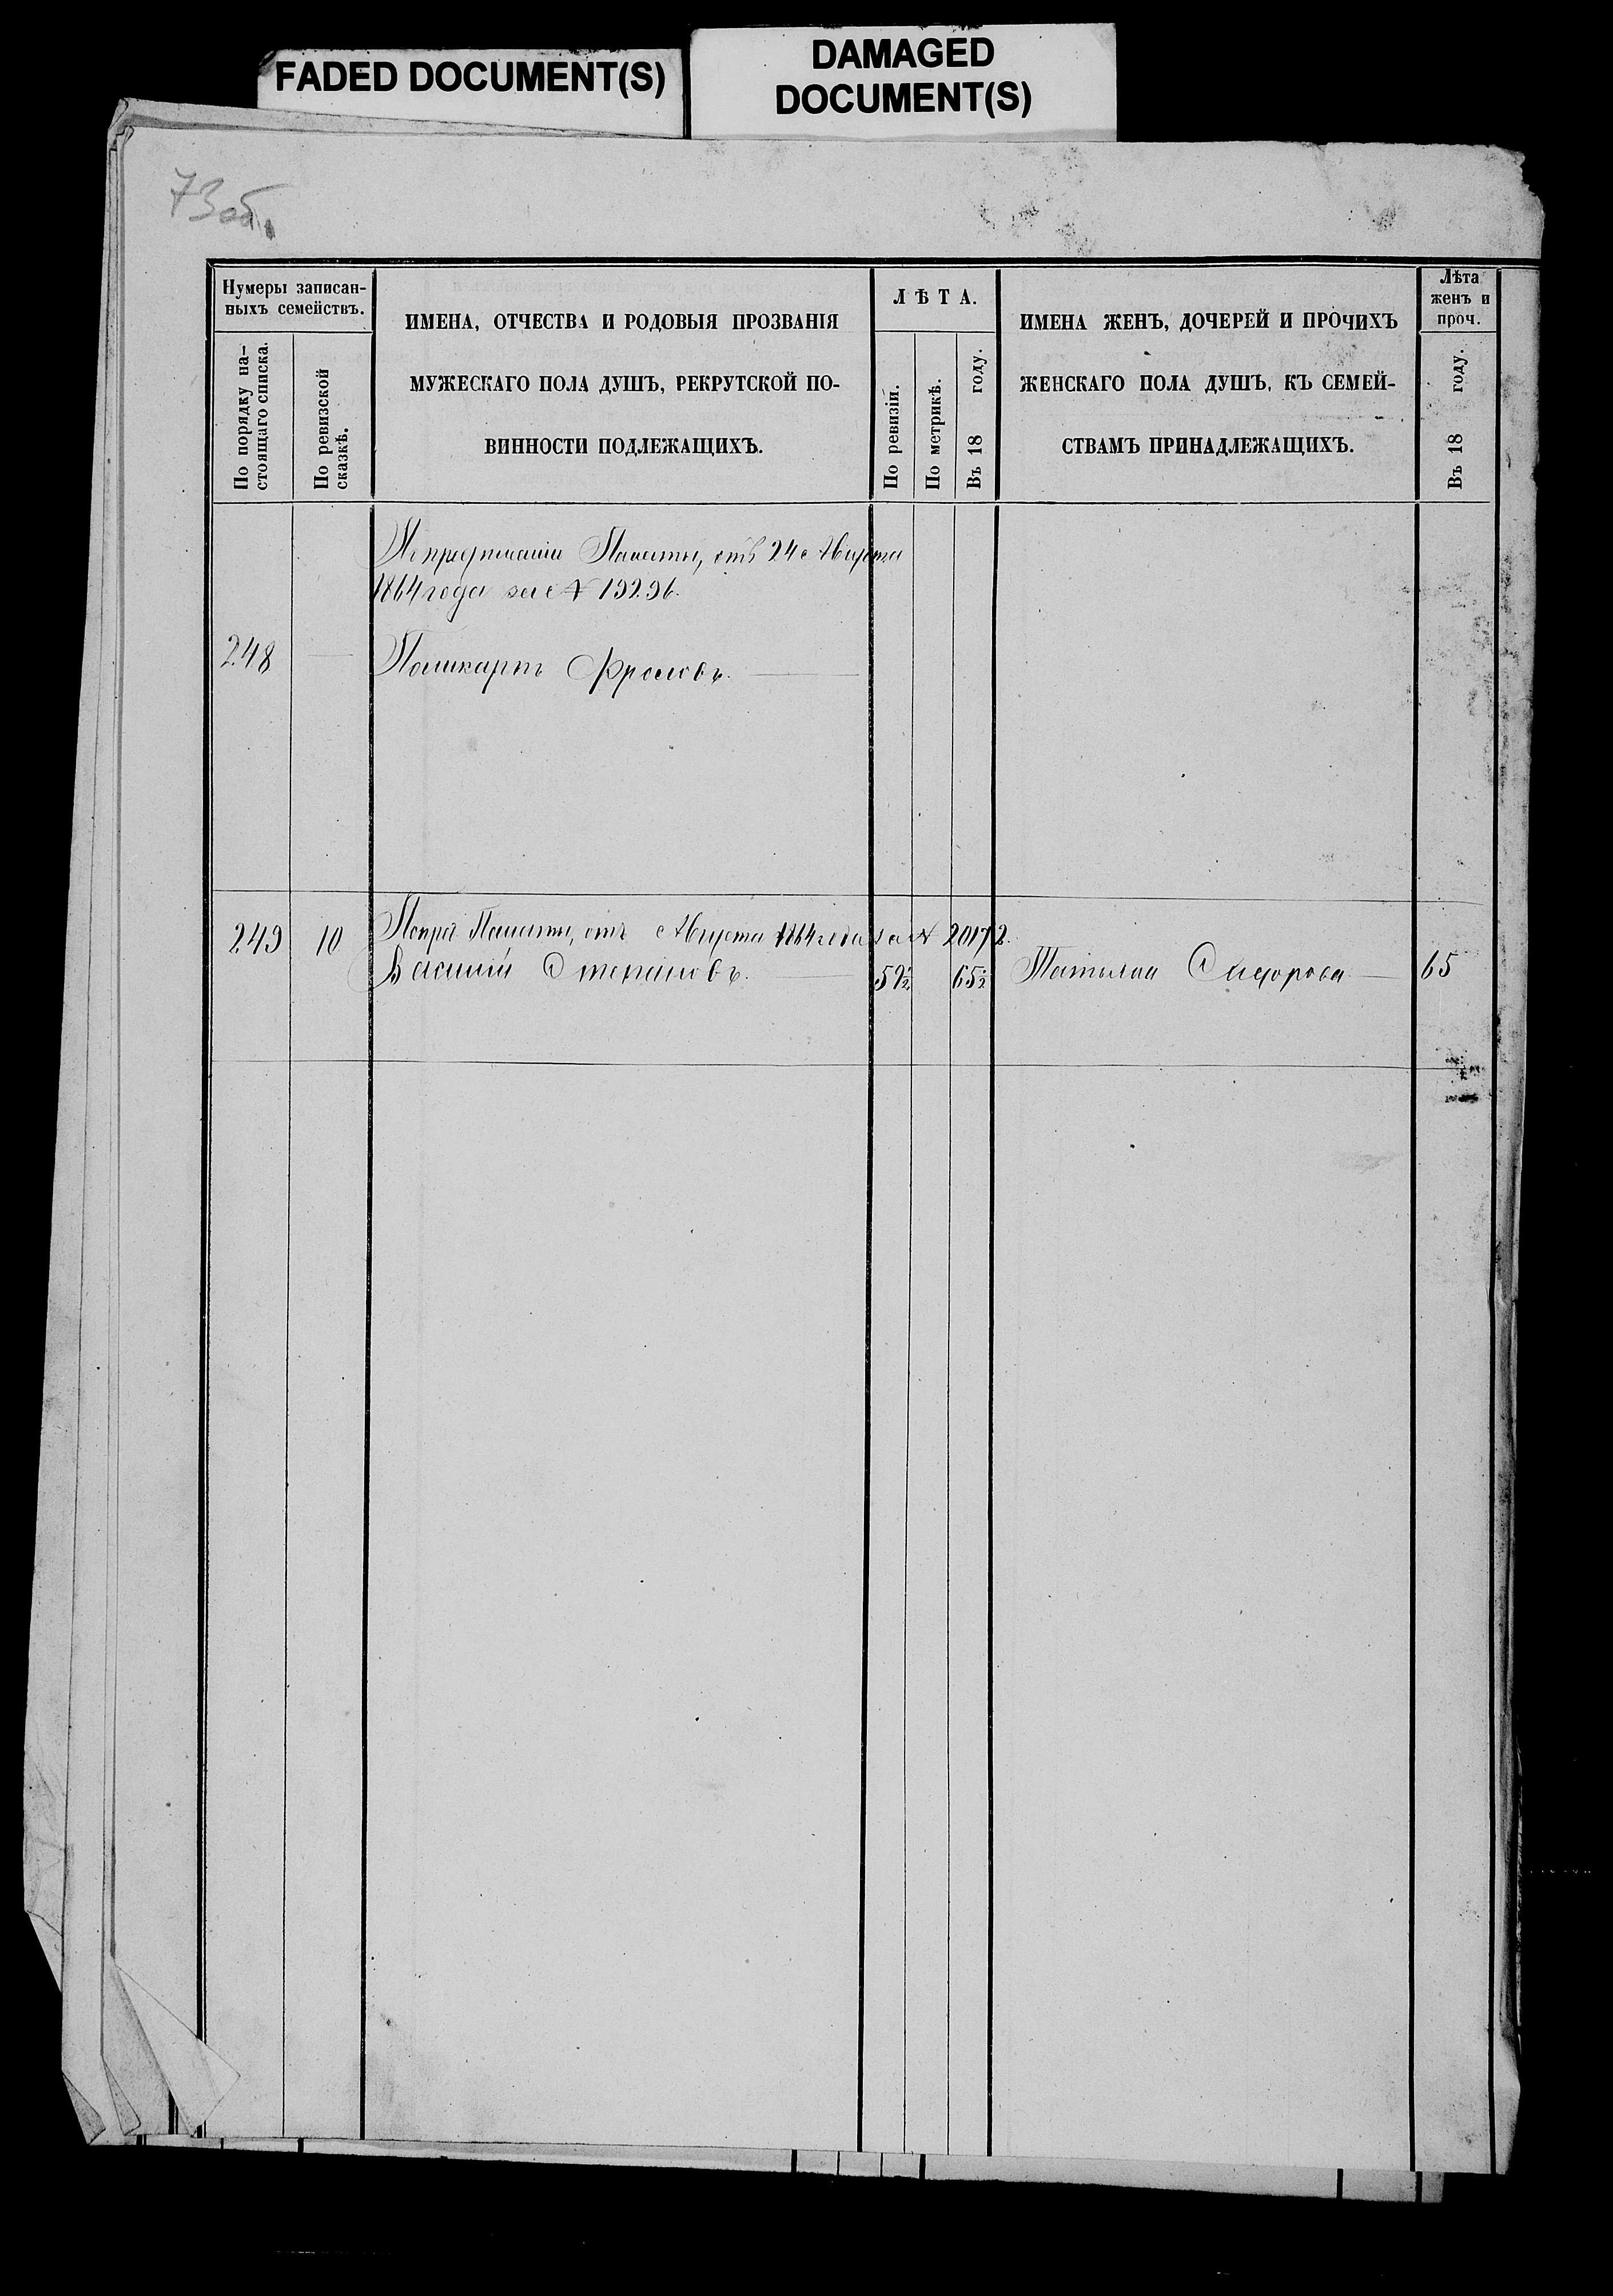 FADED DOCUMENT(S)
DAMAGED
DOCUMENT(S)
73 об.
Нумеры записан-
ныхъ семействъ.
По порядку на-
стоящаго списка.
По ревизской
сказкѣ.
ИМЕНА, ОТЧЕСТВА И РОДОВЫЯ ПРОЗВАНІЯ
МУЖЕСКАГО ПОЛА ДУШЪ, РЕКРУТСКОЙ ПО-
ВИННОСТИ ПОДЛЕЖАЩИХЪ.
ЛѢТА.
По ревизіи.
По метрикѣ.
Въ 18 году.
ИМЕНА ЖЕНЪ, ДОЧЕРЕЙ И ПРОЧИХЪ
ЖЕНСКАГО ПОЛА ДУШЪ, КЪ СЕМЕЙ-
СТВАМЪ ПРИНАДЛЕЖАЩИХЪ.
Лѣта
женъ и
проч.
Въ 18 году.
По предписанію Палаты, отъ 24 Августа
1864 года за № 19296.
248 — Поликарпъ Фроловъ. —
249 10 По пред. Палаты, отъ Августа 1864 года за № 20172.
Василій Степановъ. — 59½ 65½ Татьяна Сидорова — 65